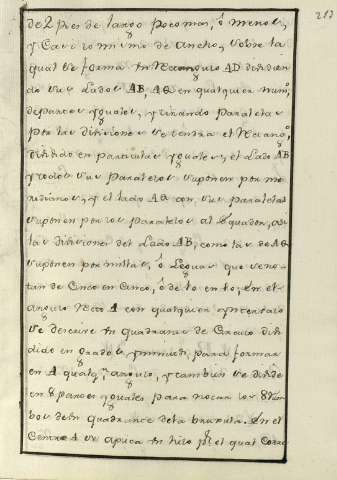 217
de 2 pies de largo poco mas, ó menos,
y casi lo mismo de ancho, sobre la
qual se forma un Rectangulo AD dividien
do sus Lados AB, AC en qualquier num.o
de partes yguales, y tirando paralelas
por las divisiones se tendra el Rectang.o
dividido en partes yguales, y el Lado AB
y todos sus paralelos suponen por me
ridianos, y el lado AC con sus paralelas
suponen por los paralelos al Equador, y
las divisiones del Lado AB, como las de AC
suponen por millas, ó Leguas que seno
tan de Cinco en Cinco, ó de 10 en 10, En el
angulo recto A con qualquier yntervalo
se descrive un quadrante de Circulo divi
dido en grados y minut.s para formar
en A qualq.r angulo, y tambien se divide
en 8 partes yguales para notar los 8 Rum
bos de un quadrante de la bruxula. En el
Centro A se aplica un hilo p.r el qual Corre